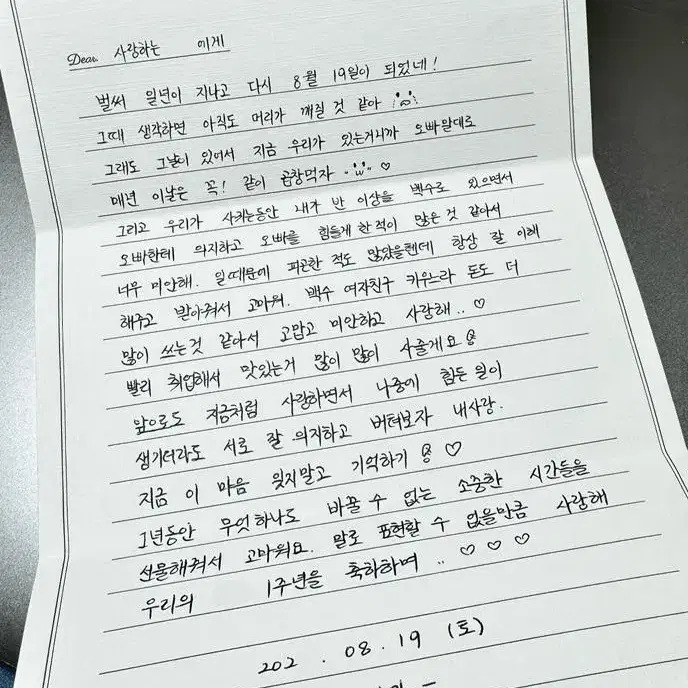 Dear. 사랑하는 에게
벌써 일년이 지나고 다시 8월 19일이 되었네!
그때 생각하면 아직도 머리가 깨질 것 같아
그래도 그날이 있어서 지금 우리가 있는거니까 오빠말대로
매년 이날은 꼭! 같이 곱창먹자 ♡
그리고 우리가 사귀는동안 내가 반 이상을 백수로 있으면서
오빠한테 의지하고 오빠를 힘들게 한 적이 많은 것 같아서
너무 미안해. 일때문에 피곤한 적도 많았을텐데 항상 잘 이해
해주고 받아줘서 고마워. 백수 여자친구 키우느라 돈도 더
많이 쓰는것 같아서 고맙고 미안하고 사랑해.. ♡
빨리 취업해서 맛있는거 많이 많이 사줄게요
앞으로도 지금처럼 사랑하면서 나중에 힘든 일이
생기더라도 서로 잘 의지하고 버텨보자 내사랑.
지금 이 마음 잊지말고 기억하기 ♡
1년동안 무엇하나도 바꿀 수 없는 소중한 시간들을
선물해줘서 고마워요. 말로 표현할 수 없을만큼 사랑해
우리의 1주년을 축하하며 .. ♡ ♡ ♡
202 . 08 . 19 (토)